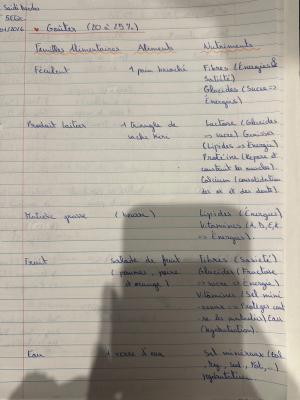 Saidi
5E02
01/2026 ♥ Goûters (20 à 25%)
Familles Alimentaires Aliments Nutriments
Féculent 1 pain brioché Fibres (Énergies &
Satiété)
Glucides (Sucre =>
Énergies)
Produit laitier 1 triangle de Lactose (Glucides
vache kiri => sucre) Graisses
(Lipides => Énergie)
Protéine (Répare et
construit les muscles).
Calcium (consolidation
des os et des dents).
Matière grasse Lipides (Énergies)
Vitamines (A, D, E, K
=> Énergies).
Fruit Salade de fruit Fibres (Satiété)
(pommes, poire Glucides (Fructose
et orange) => sucre => Énergie)
Vitamines (Sel miné
=> Protéger cont
re les maladies) Eau
(hydratation).
Eau 1 verre d'eau Sel minéraux (
hydratation